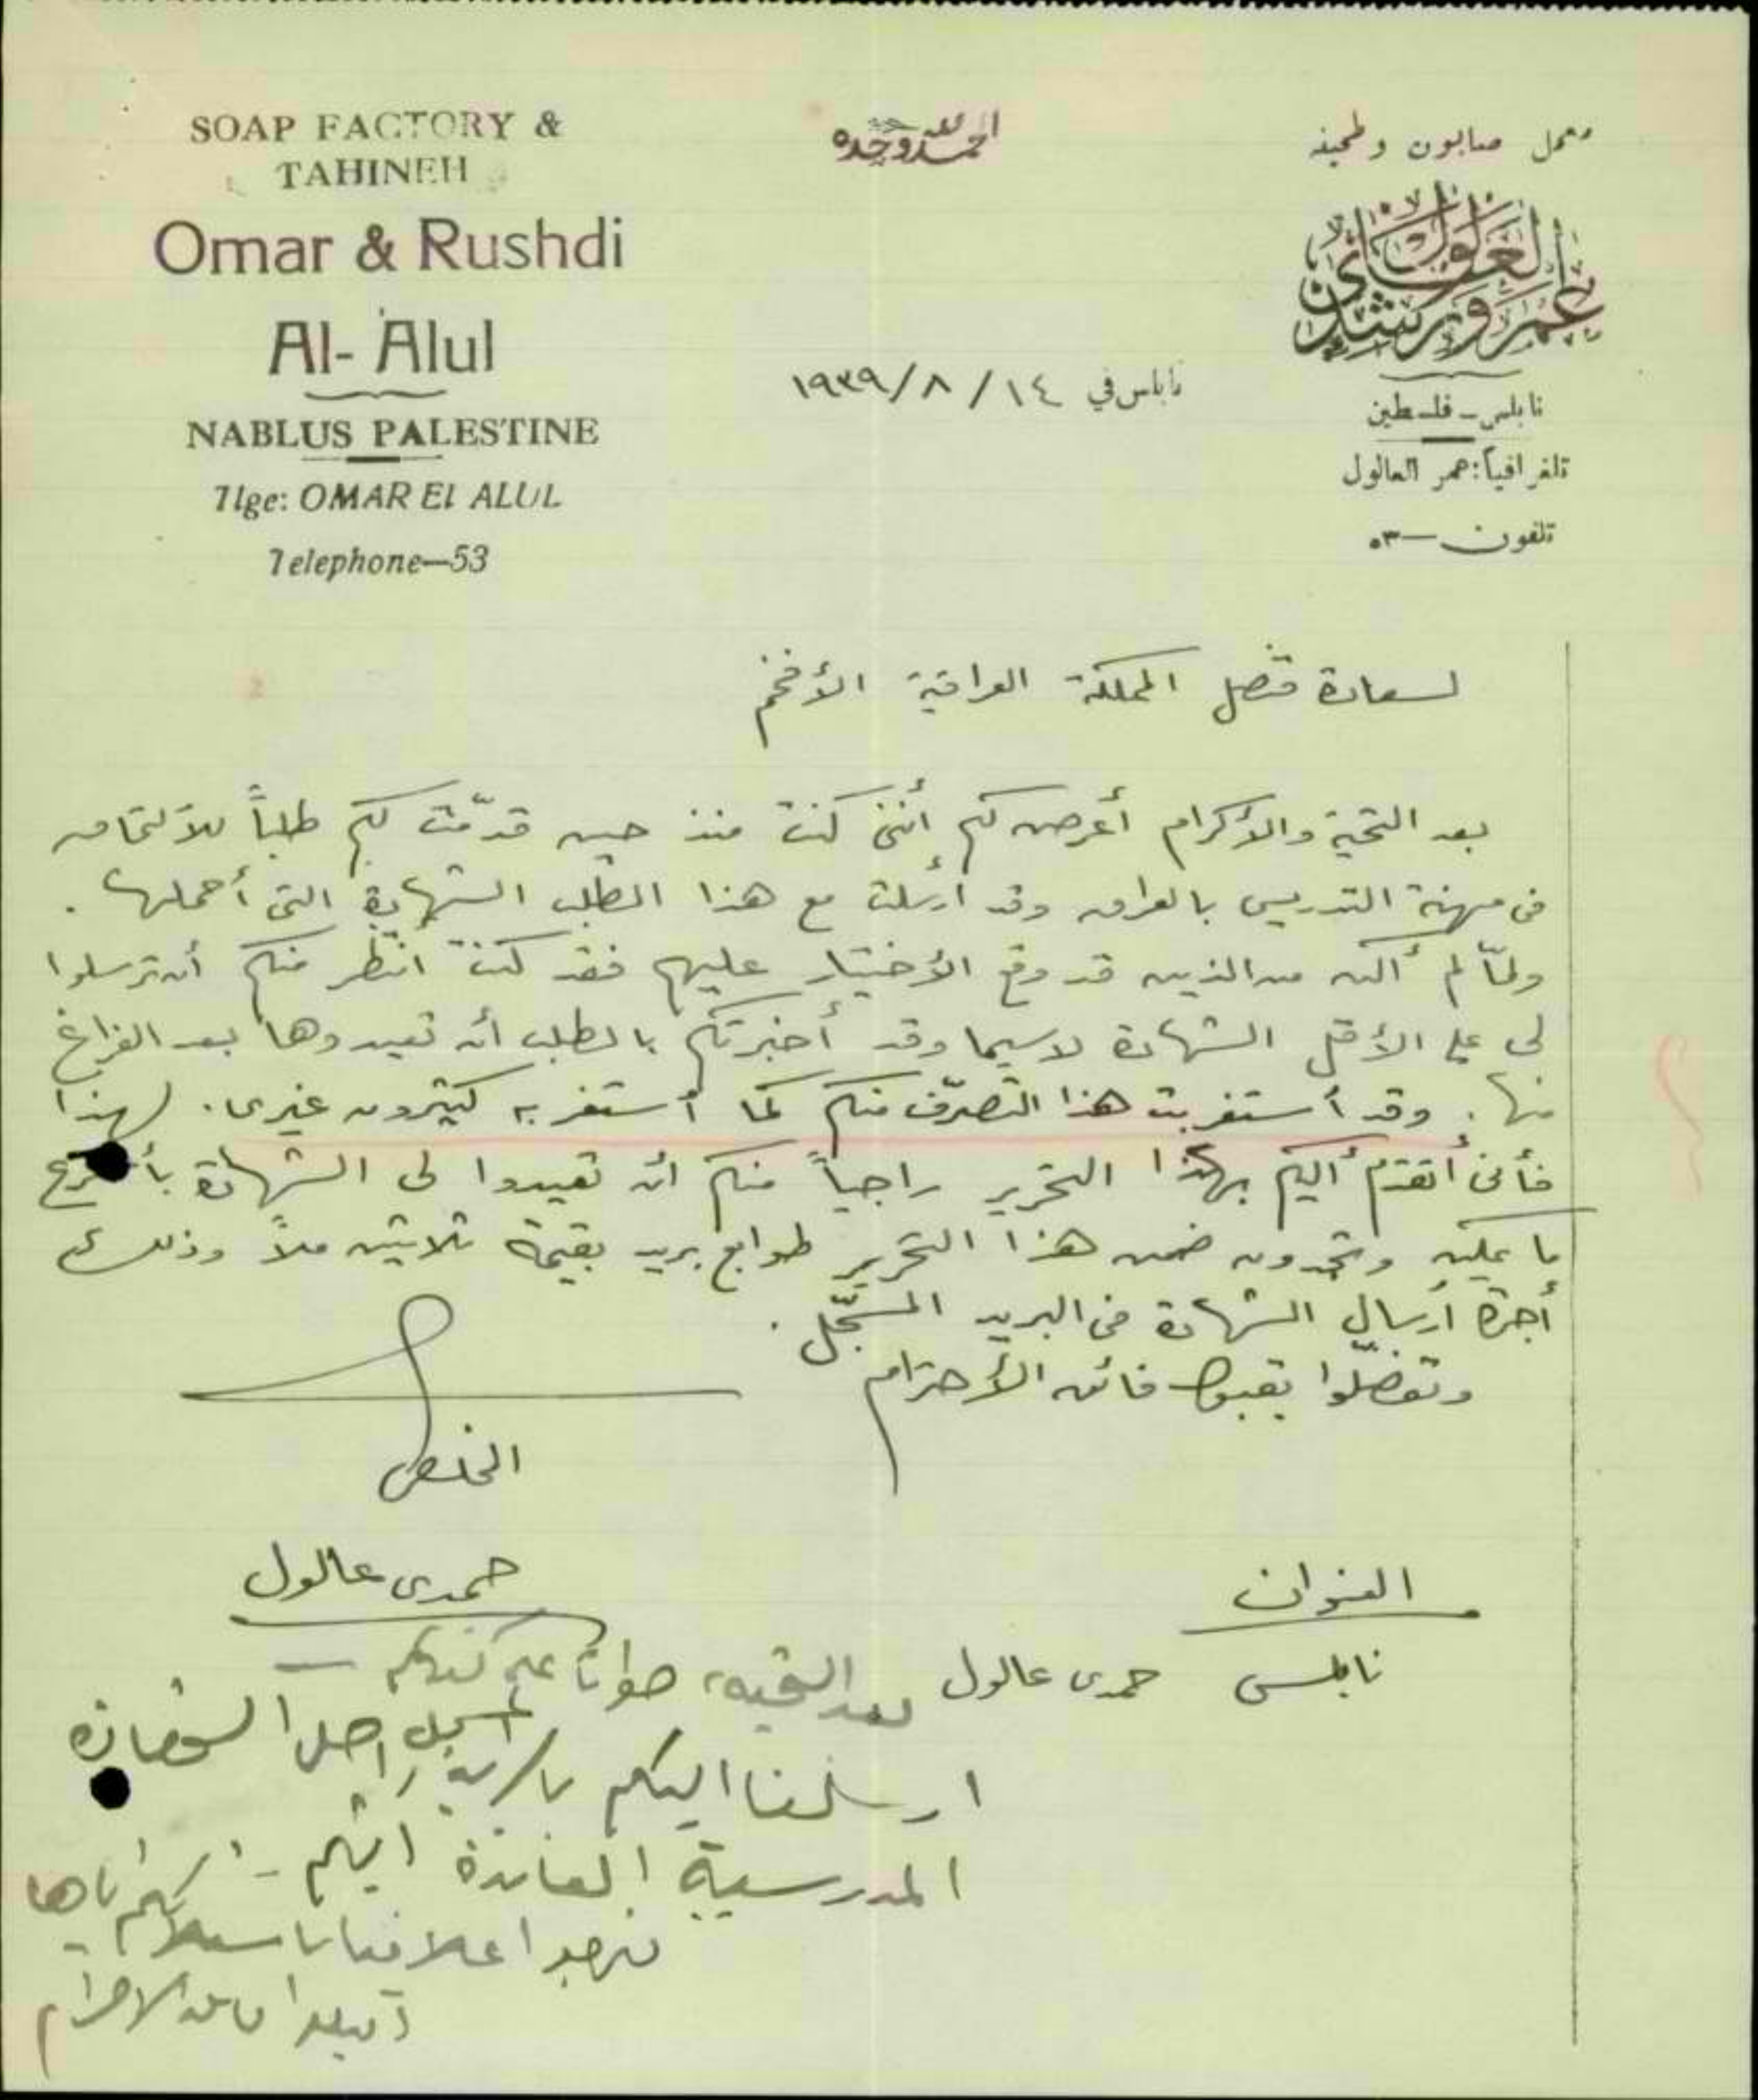 SOAP FACTORY &
TAHINEH
Omar & Rushdi
Al-Alul
NABLUS PALESTINE
Tlge: OMAR El ALUL
Telephone—53
الحمد لله وحده
معمل صابون وطحينه
عمر ورشدي العالول
نابلس - فلسطين
تلغرافياً: عمر العالول
تلفون — ٥٣
نابلس في ١٤ / ٨ / ١٩٣٩
لسعادة قنصل المملكة العراقية الأفخم
بعد التحية والأكرام أعرض لكم أنني كنت منذ حين قدّمت لكم طلباً للألتحاق
في مهنة التدريس بالعراق وقد أرسلت مع هذا الطلب الشهادة التي أحملها .
ولمّا لم أكن من الذين قد وقع الأختيار عليهم فقد كنت انتظر منكم أن ترسلوا
لي على الأقل الشهادة لاسيما وقد أخبرتكم بالطلب أن تعيدوها بعد الفراغ
منها . وقد أستغربت هذا التصرّف منكم كما أستغربه كثيرون غيري . لهذا
فأني أتقدم أليكم بهذا التحرير راجياً منكم أن تعيدوا لي الشهادة بأسرع
ما يمكن وتجدون ضمن هذا التحرير طوابع بريد بقيمة ثلاثين ملاً وذلك
أجرة أرسال الشهادة في البريد المسجّل .
وتفضّلوا بقبول فائق الأحترام
المخلص
حمدي عالول
العنوان
نابلس حمدي عالول
بعد التحية، جواباً على كتابكم —
ارسلنا اليكم بالبريد المسجل اصل الشهادة
المدرسية العائدة اليكم -
نرجو اعلامنا باستلامكم اياها
فائق الاحترام